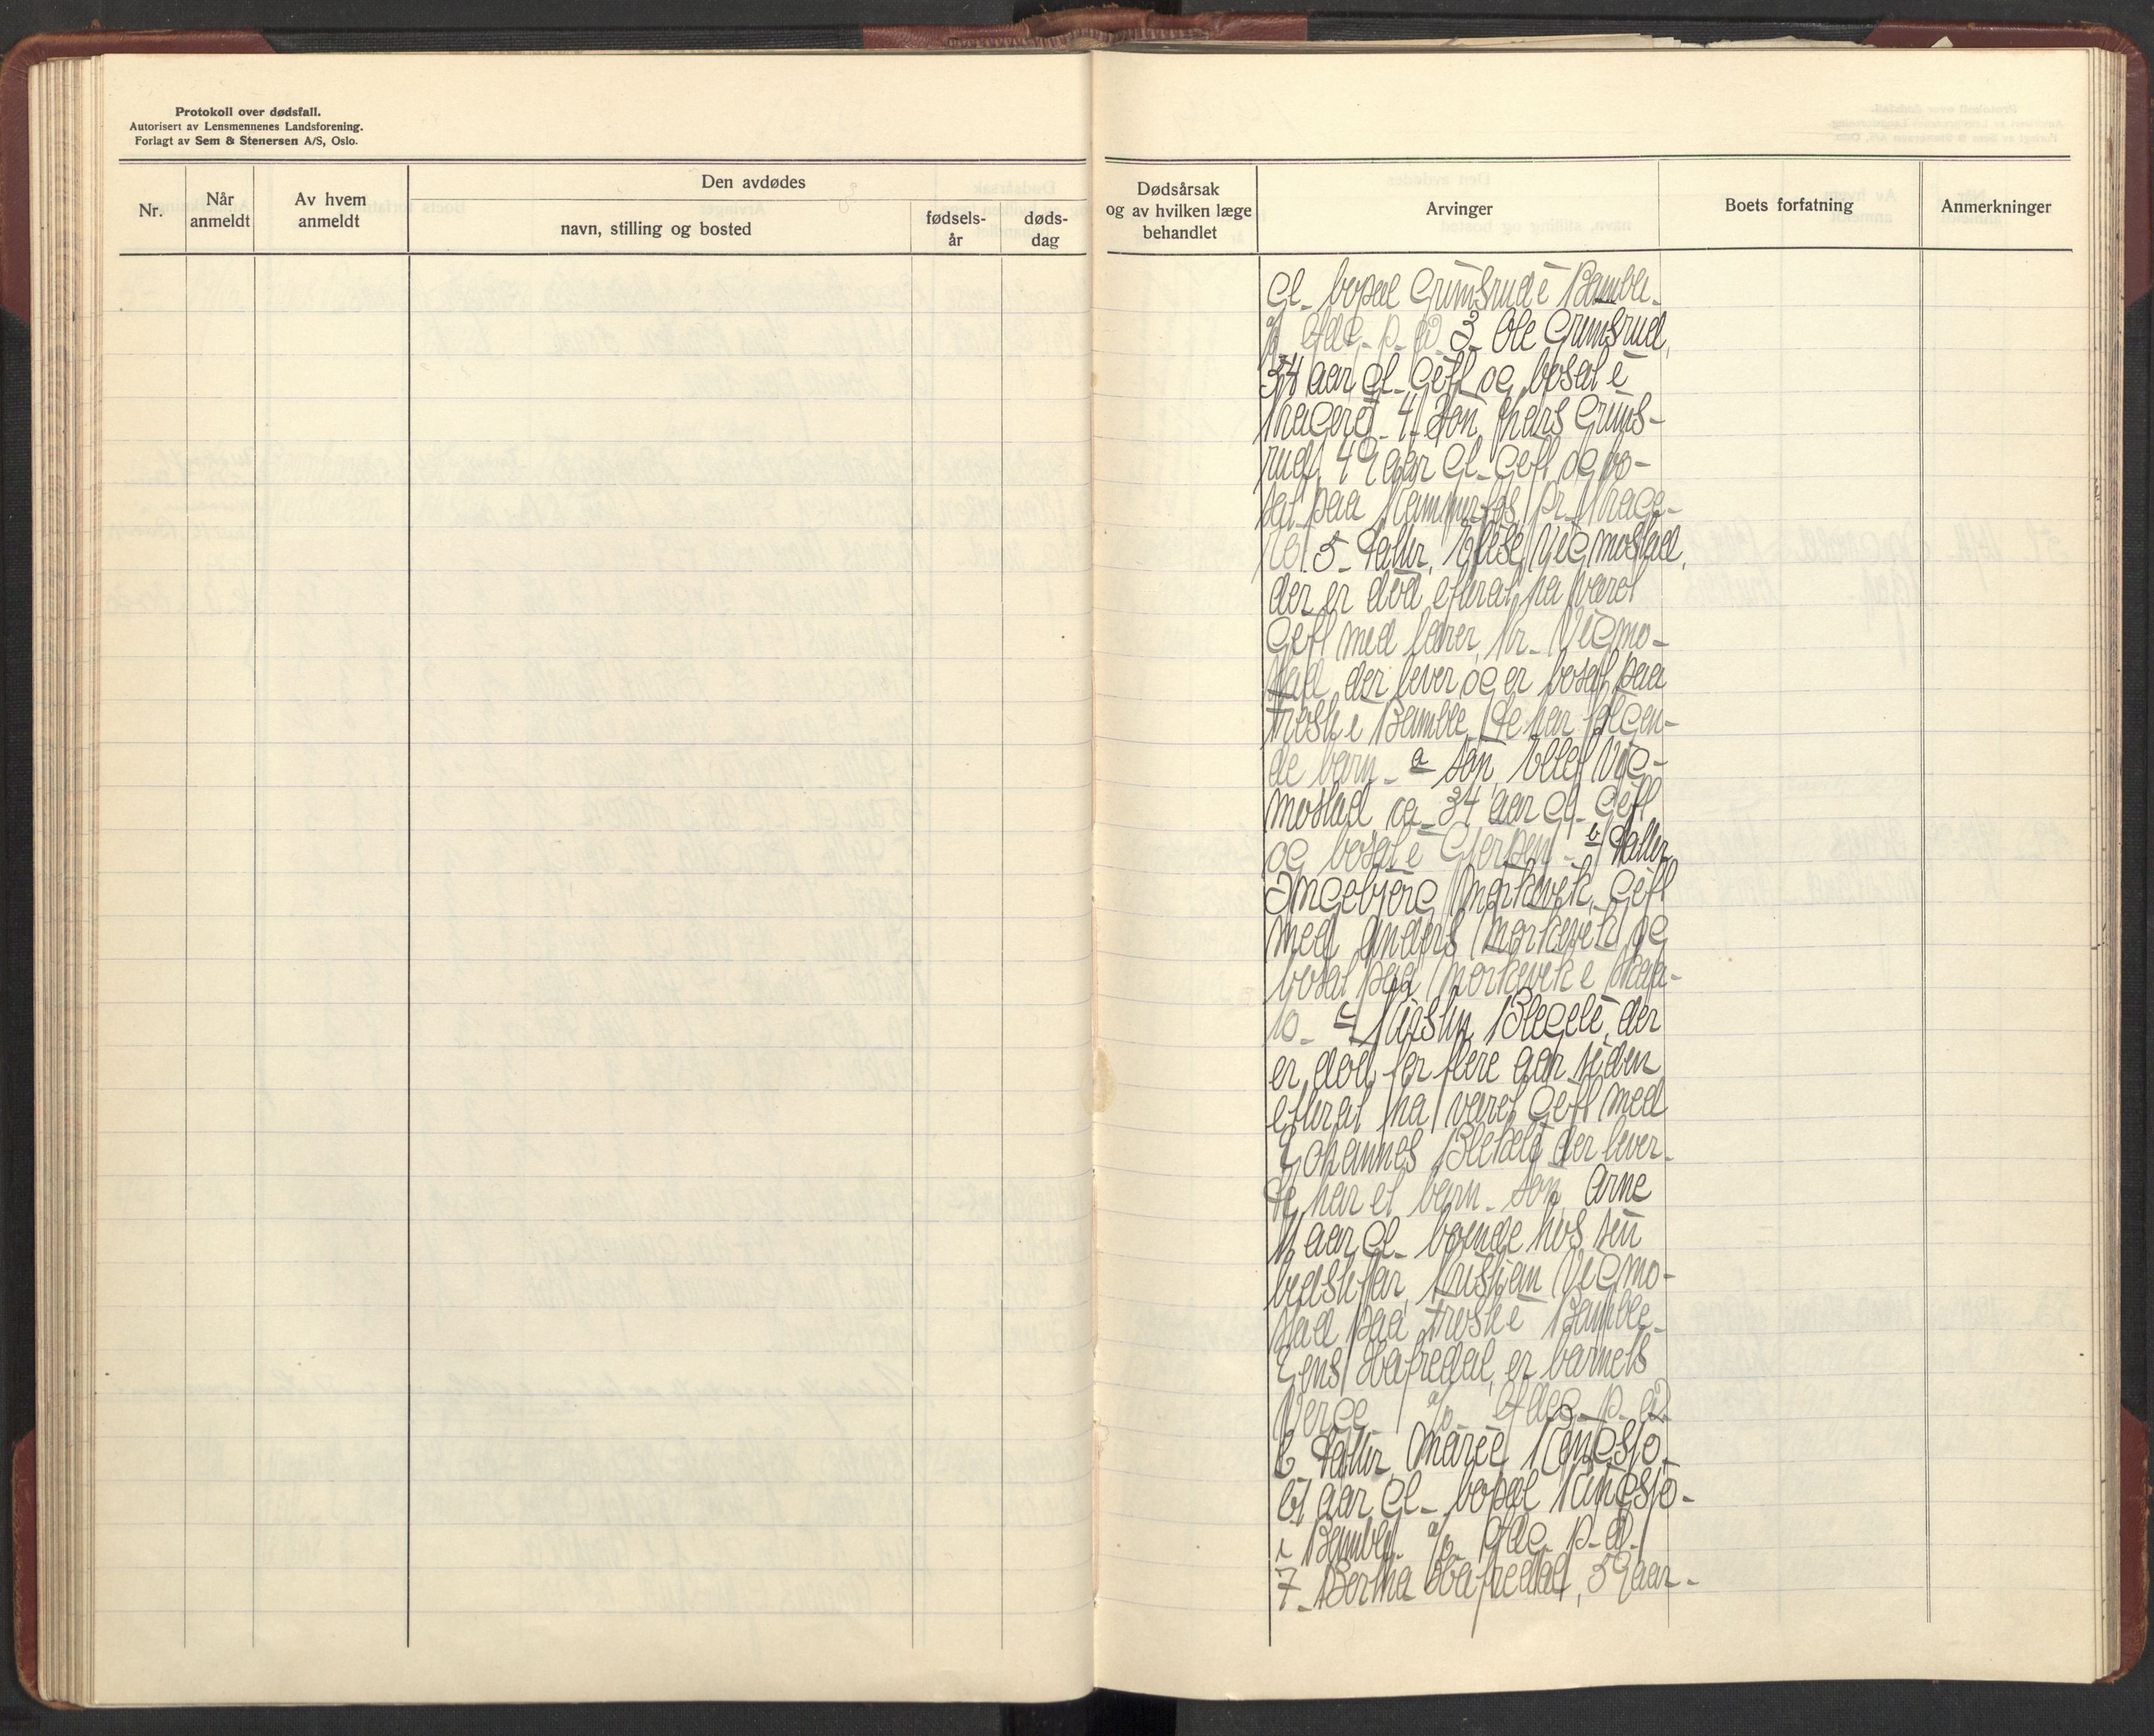 Protokoll over dødsfall.
Autorisert av Lensmennenes Landsforening.
Forlagt av Sem & Stenersen A/S, Oslo.
Nr.
Når anmeldt
Av hvem anmeldt
Den avdødes
navn, stilling og bosted
fødsels-år
døds-dag
Dødsårsak og av hvilken læge behandlet
Arvinger
Boets forfatning
Anmerkninger
gl. bopæl Grimsrud i Bamble.
3. Ole Grimsrud,
54 aar gl. Gift og bosat i
Kragerø. 4. Søn, Hans Grims-
rud, 49 aar gl. Gift og bo-
sat paa Kammerfos, pr. Krage-
rø. 5. Datter, Elise Vigmostad,
der er død efterat ha været
Gift med lærer, Kr. Vigmo-
stad, der lever og er bosat paa
Trosbi i Bamble. De har følgen-
de barn. a søn, Ellef Vig-
mostad ca. 34 aar gl. Gift
og bosat i Gjerpen. b Datter
Ingebjørg Mørkevik, Gift
med Anders Mørkevik, og
bosat paa Mørkevik i Skaa-
tø. c, Blegeli, der
er død for flere aar siden
efterat ha været Gift med
Johannes Blekeli der lever.
De har et barn. Søn, Arne
11 aar gl. boende hos sin
bedstefar, Kristian Vigmo-
stad paa Trosbi i Bamble.
Jens Hafredal, er barnets
Verge.
6. Datter, Marie
61 aar gl. bopæl
i Bamble.
7. Bertha Hafredal, 59 aar.